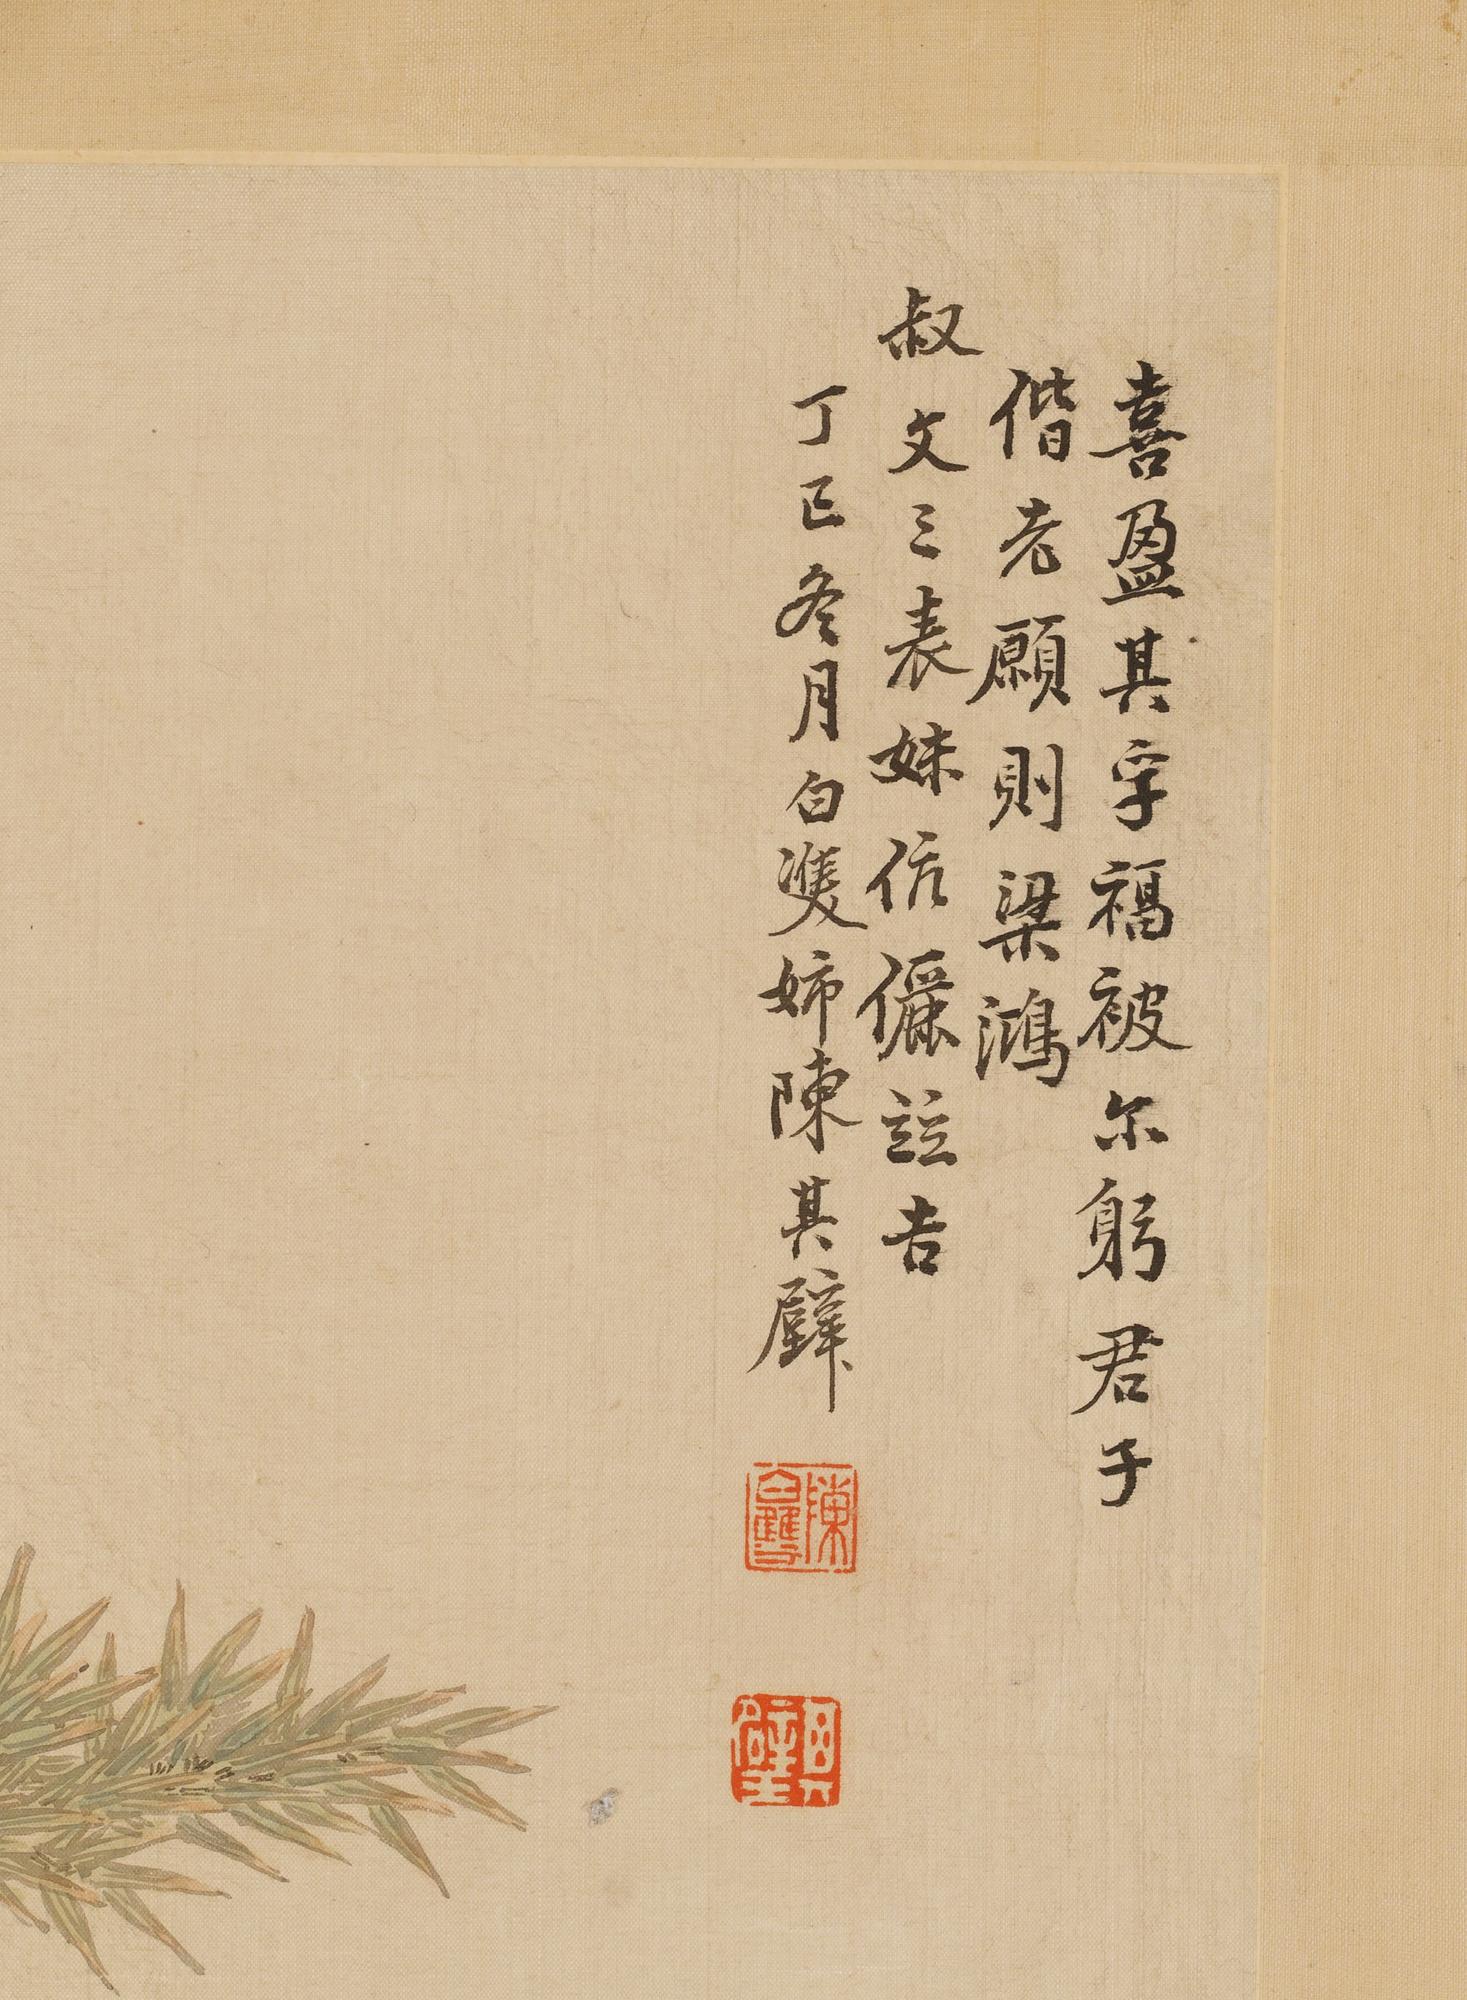 喜盈其字福被尔躬君子
偕老願則梁鴻
叔文三表妹伉儷誌吉
丁巳冬月白雙姊陳其璧
陳白雙
其璧